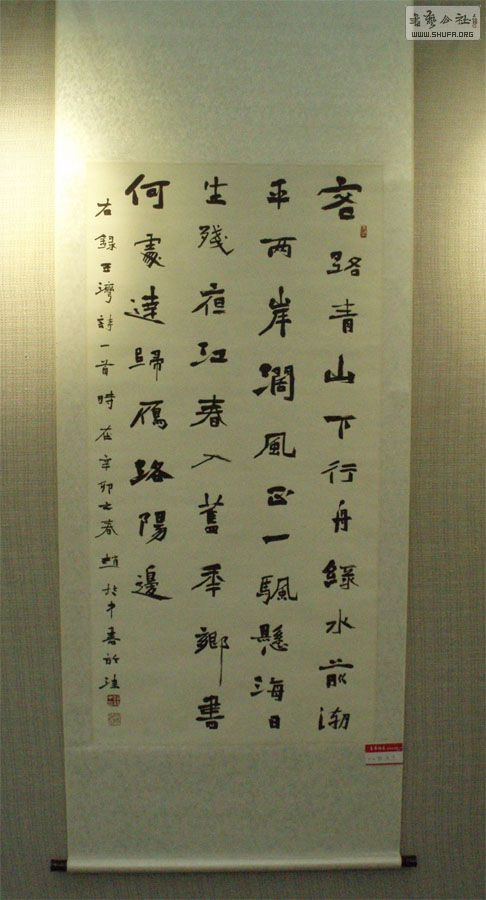 客路青山下行舟綠水前潮
平兩岸濶風正一颿懸海日
生殘夜江春入舊年鄉書
何處達歸雁路陽邊
右錄王灣詩一首時在辛卯之春趙
書藝公社
WWW.SHUFA.ORG